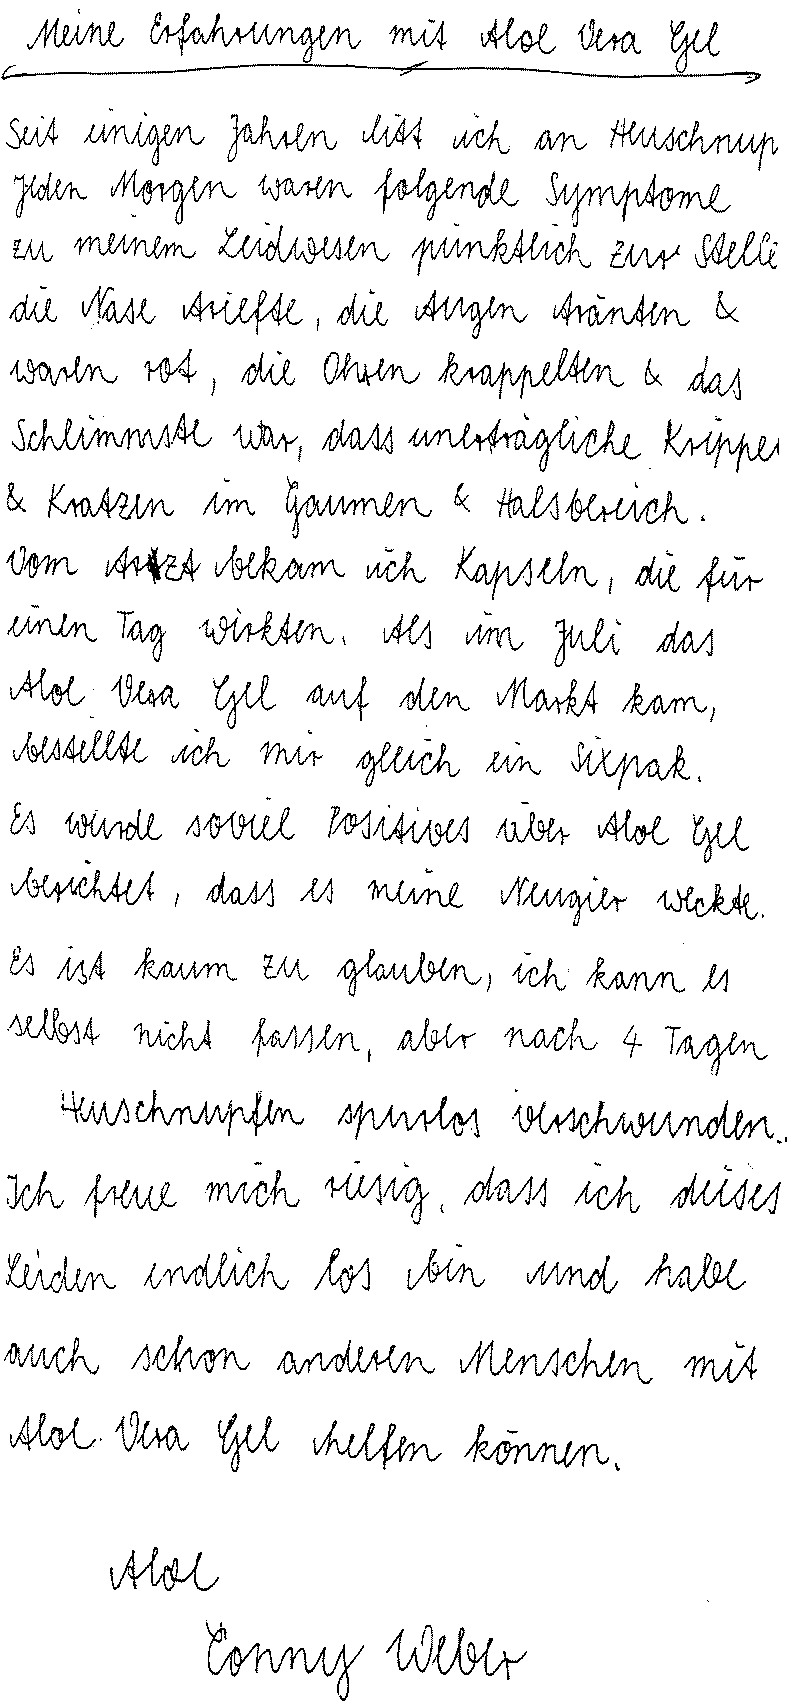 Meine Erfahrungen mit Aloe Vera Gel
Seit einigen Jahren litt ich an Heuschnup
Jeden Morgen waren folgende Symptome
zu meinem Leidwesen pünktlich zur Stelle
die Nase triefte, die Augen tränten &
waren rot, die Ohren krappelten & das
Schlimmste war, dass unerträgliche Krippel
& Kratzen im Gaumen & Halsbereich.
Vom Arzt bekam ich Kapseln, die für
einen Tag wirkten. Als im Juli das
Aloe Vera Gel auf den Markt kam,
bestellte ich mir gleich ein Sixpak.
Es wurde soviel Positives über Aloe Gel
berichtet, dass es meine Neugier weckte.
Es ist kaum zu glauben, ich kann es
selbst nicht fassen, aber nach 4 Tagen
Heuschnupfen spurlos verschwunden..
Ich freue mich riesig, dass ich deises
Leiden endlich los bin und habe
auch schon anderen Menschen mit
Aloe Vera Gel helfen können.
Aloe
Conny Weber